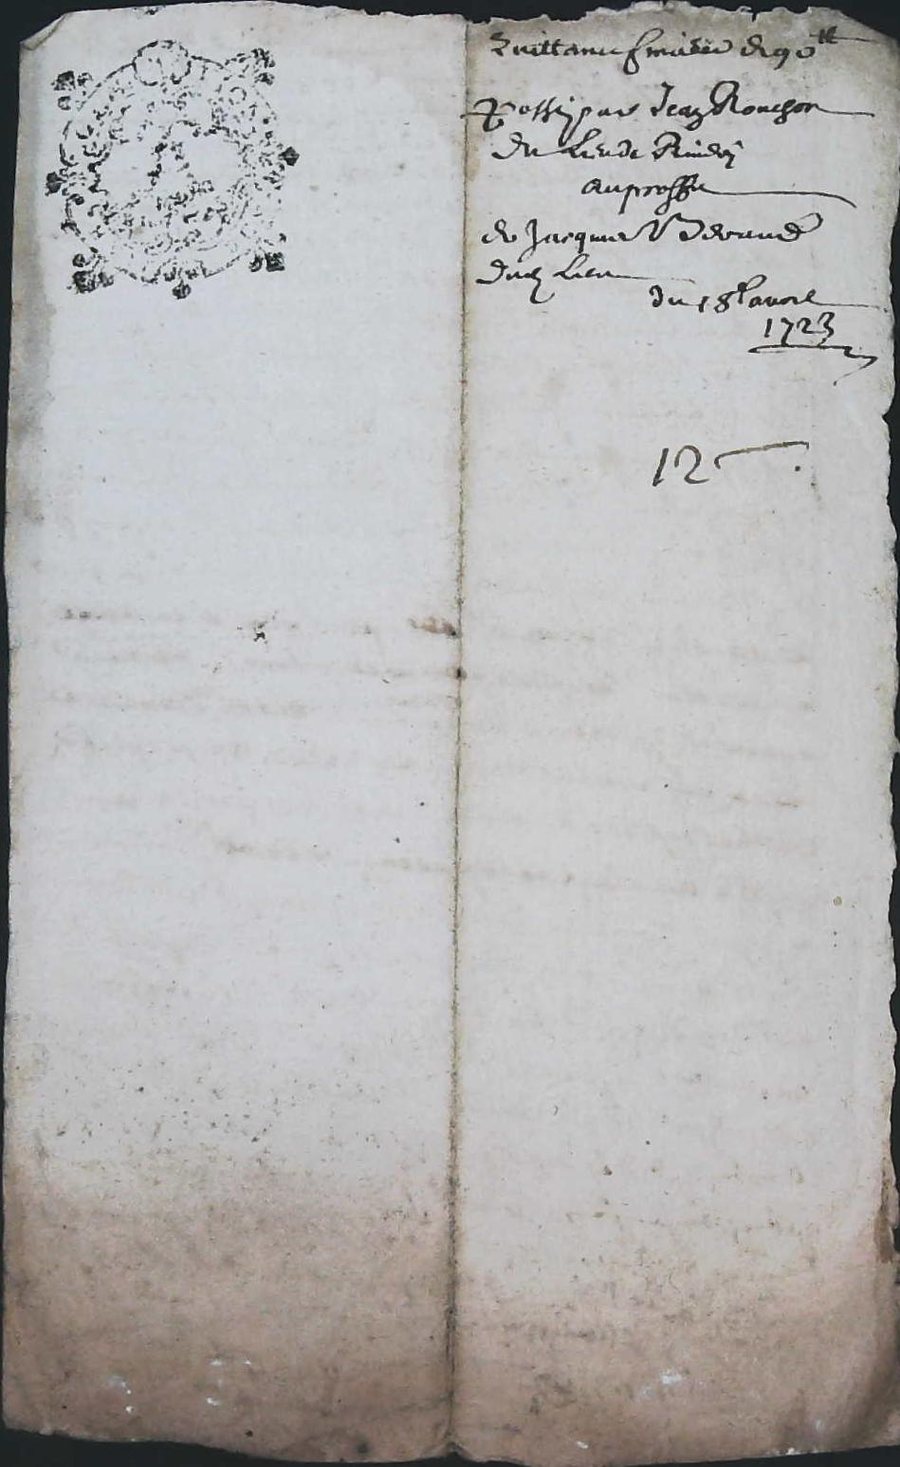 Quittance finalle de 90 tt
passé par Jean Rouchon
du Lieu de
au proffit
de Jacques
dud Lieu
du 18e avril
1723
12